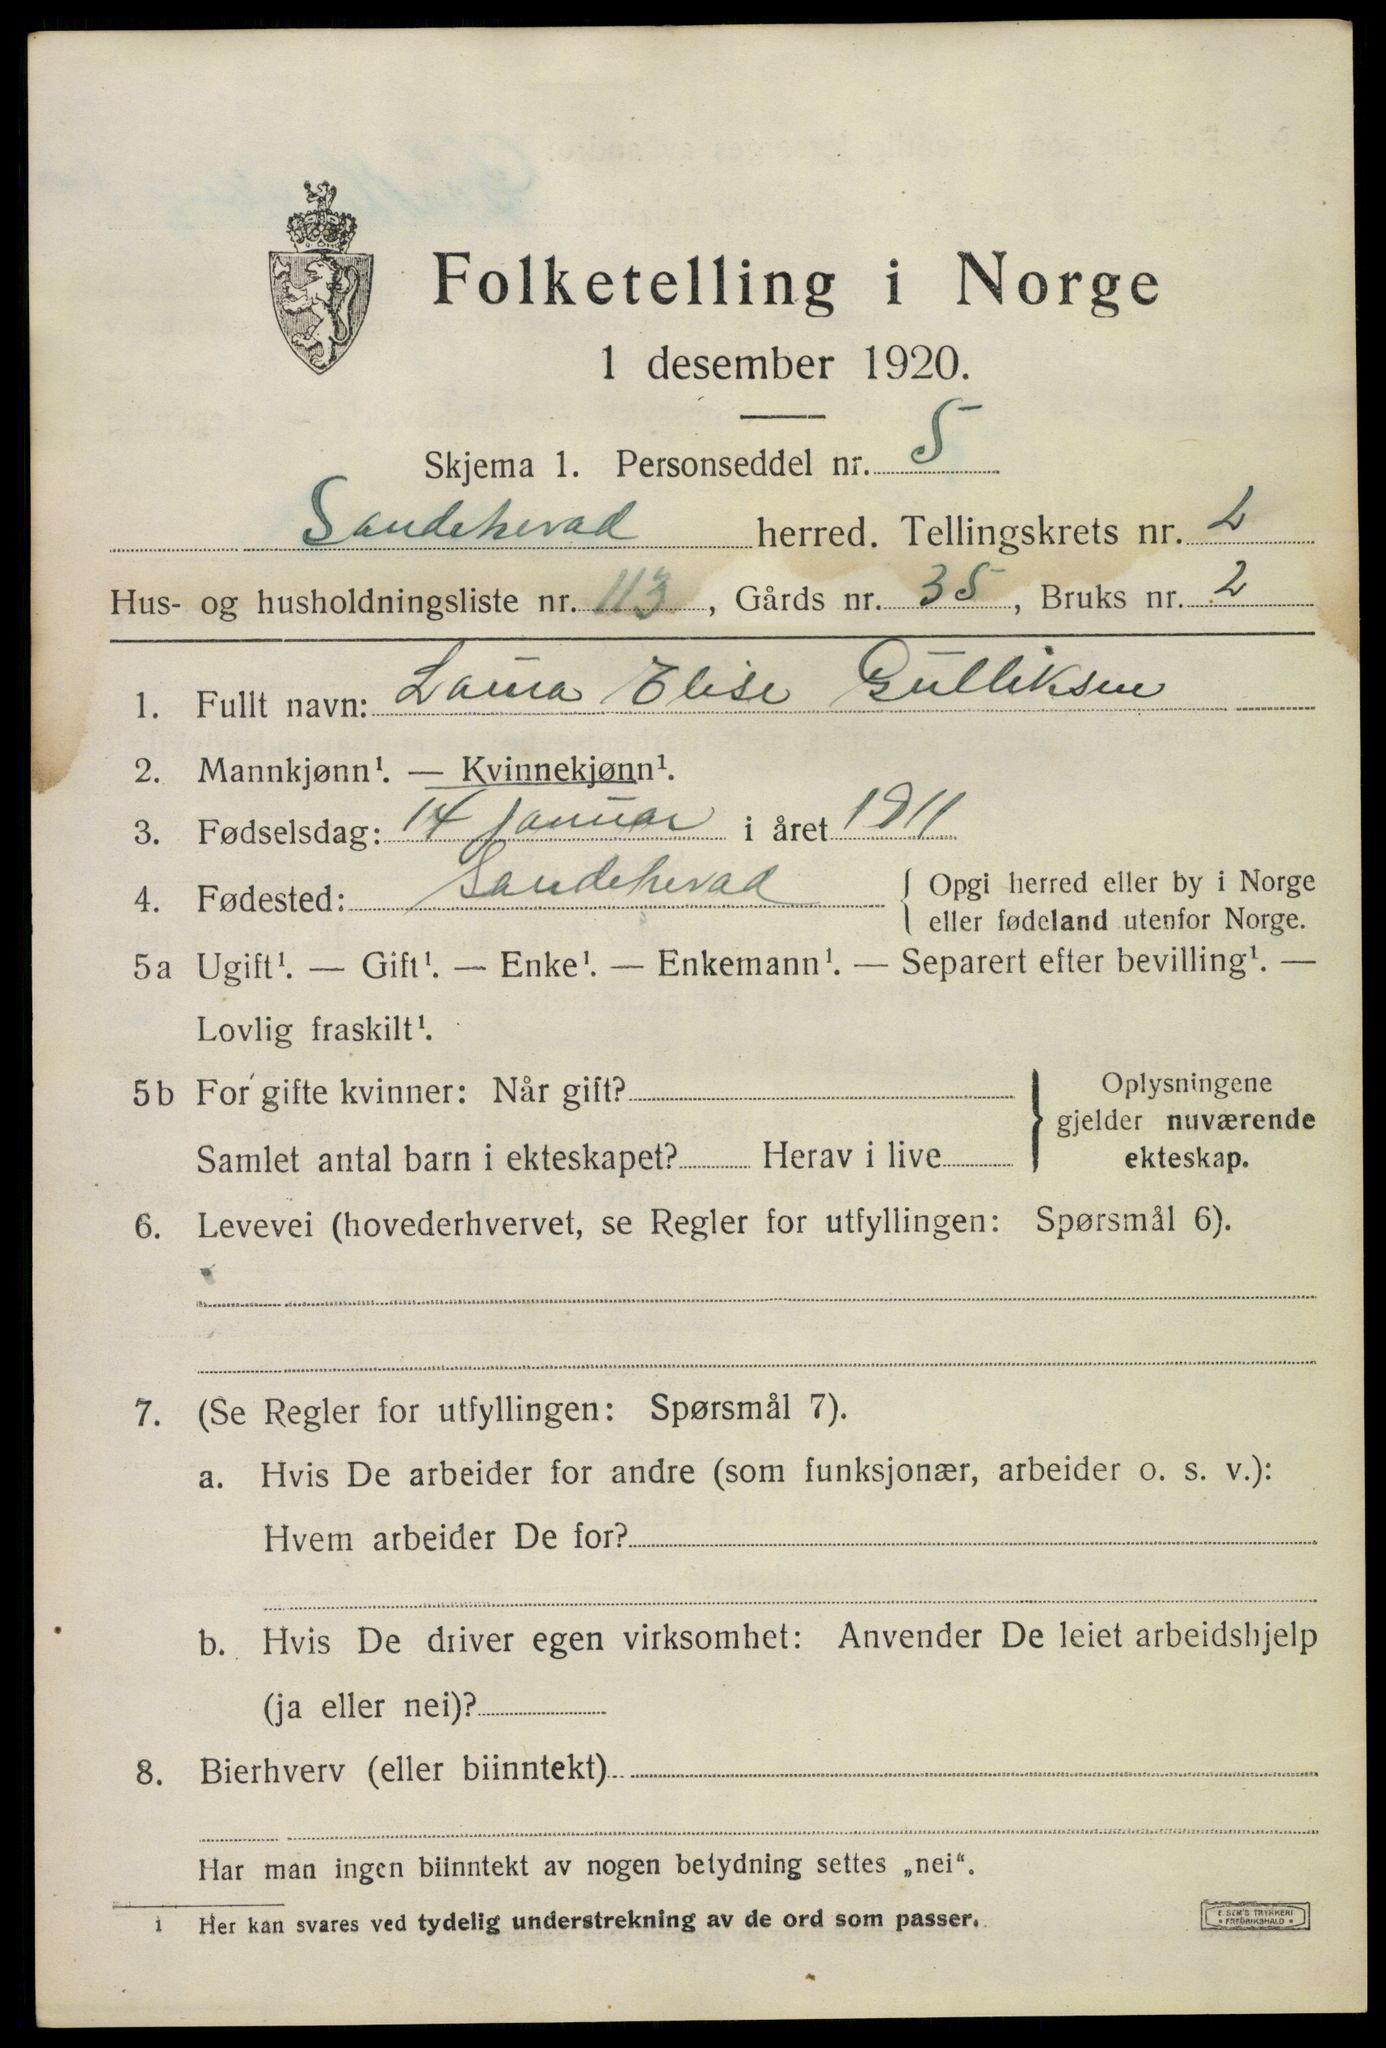 Folketelling i Norge
1 desember 1920.
Skjema 1. Personseddel nr. 5
Sandeherad herred. Tellingskrets nr. 2
Hus- og husholdningsliste nr. 113, Gårds nr. 35, Bruks nr. 2
1. Fullt navn: Laura Elise Gulliksen
2. Mannkjønn¹. — Kvinnekjønn¹.
3. Fødselsdag: 14 januar i året 1911
4. Fødested: Sandeherad { Opgi herred eller by i Norge
eller fødeland utenfor Norge.
5a Ugift¹. — Gift¹. — Enke¹. — Enkemann¹. — Separert efter bevilling¹. —
Lovlig fraskilt¹.
5b For gifte kvinner: Når gift? } Oplysningene
gjelder nuværende
Samlet antal barn i ekteskapet? Herav i live ekteskap.
6. Levevei (hovederhvervet, se Regler for utfyllingen: Spørsmål 6).
7. (Se Regler for utfyllingen: Spørsmål 7).
a. Hvis De arbeider for andre (som funksjonær, arbeider o. s. v.):
Hvem arbeider De for?
b. Hvis De driver egen virksomhet: Anvender De leiet arbeidshjelp
(ja eller nei)?
8. Bierhverv (eller biinntekt)
Har man ingen biinntekt av nogen betydning settes „nei“.
1 Her kan svares ved tydelig understrekning av de ord som passer.
E. SEM'S TRYKKERI
• FREDRIKSHALD •